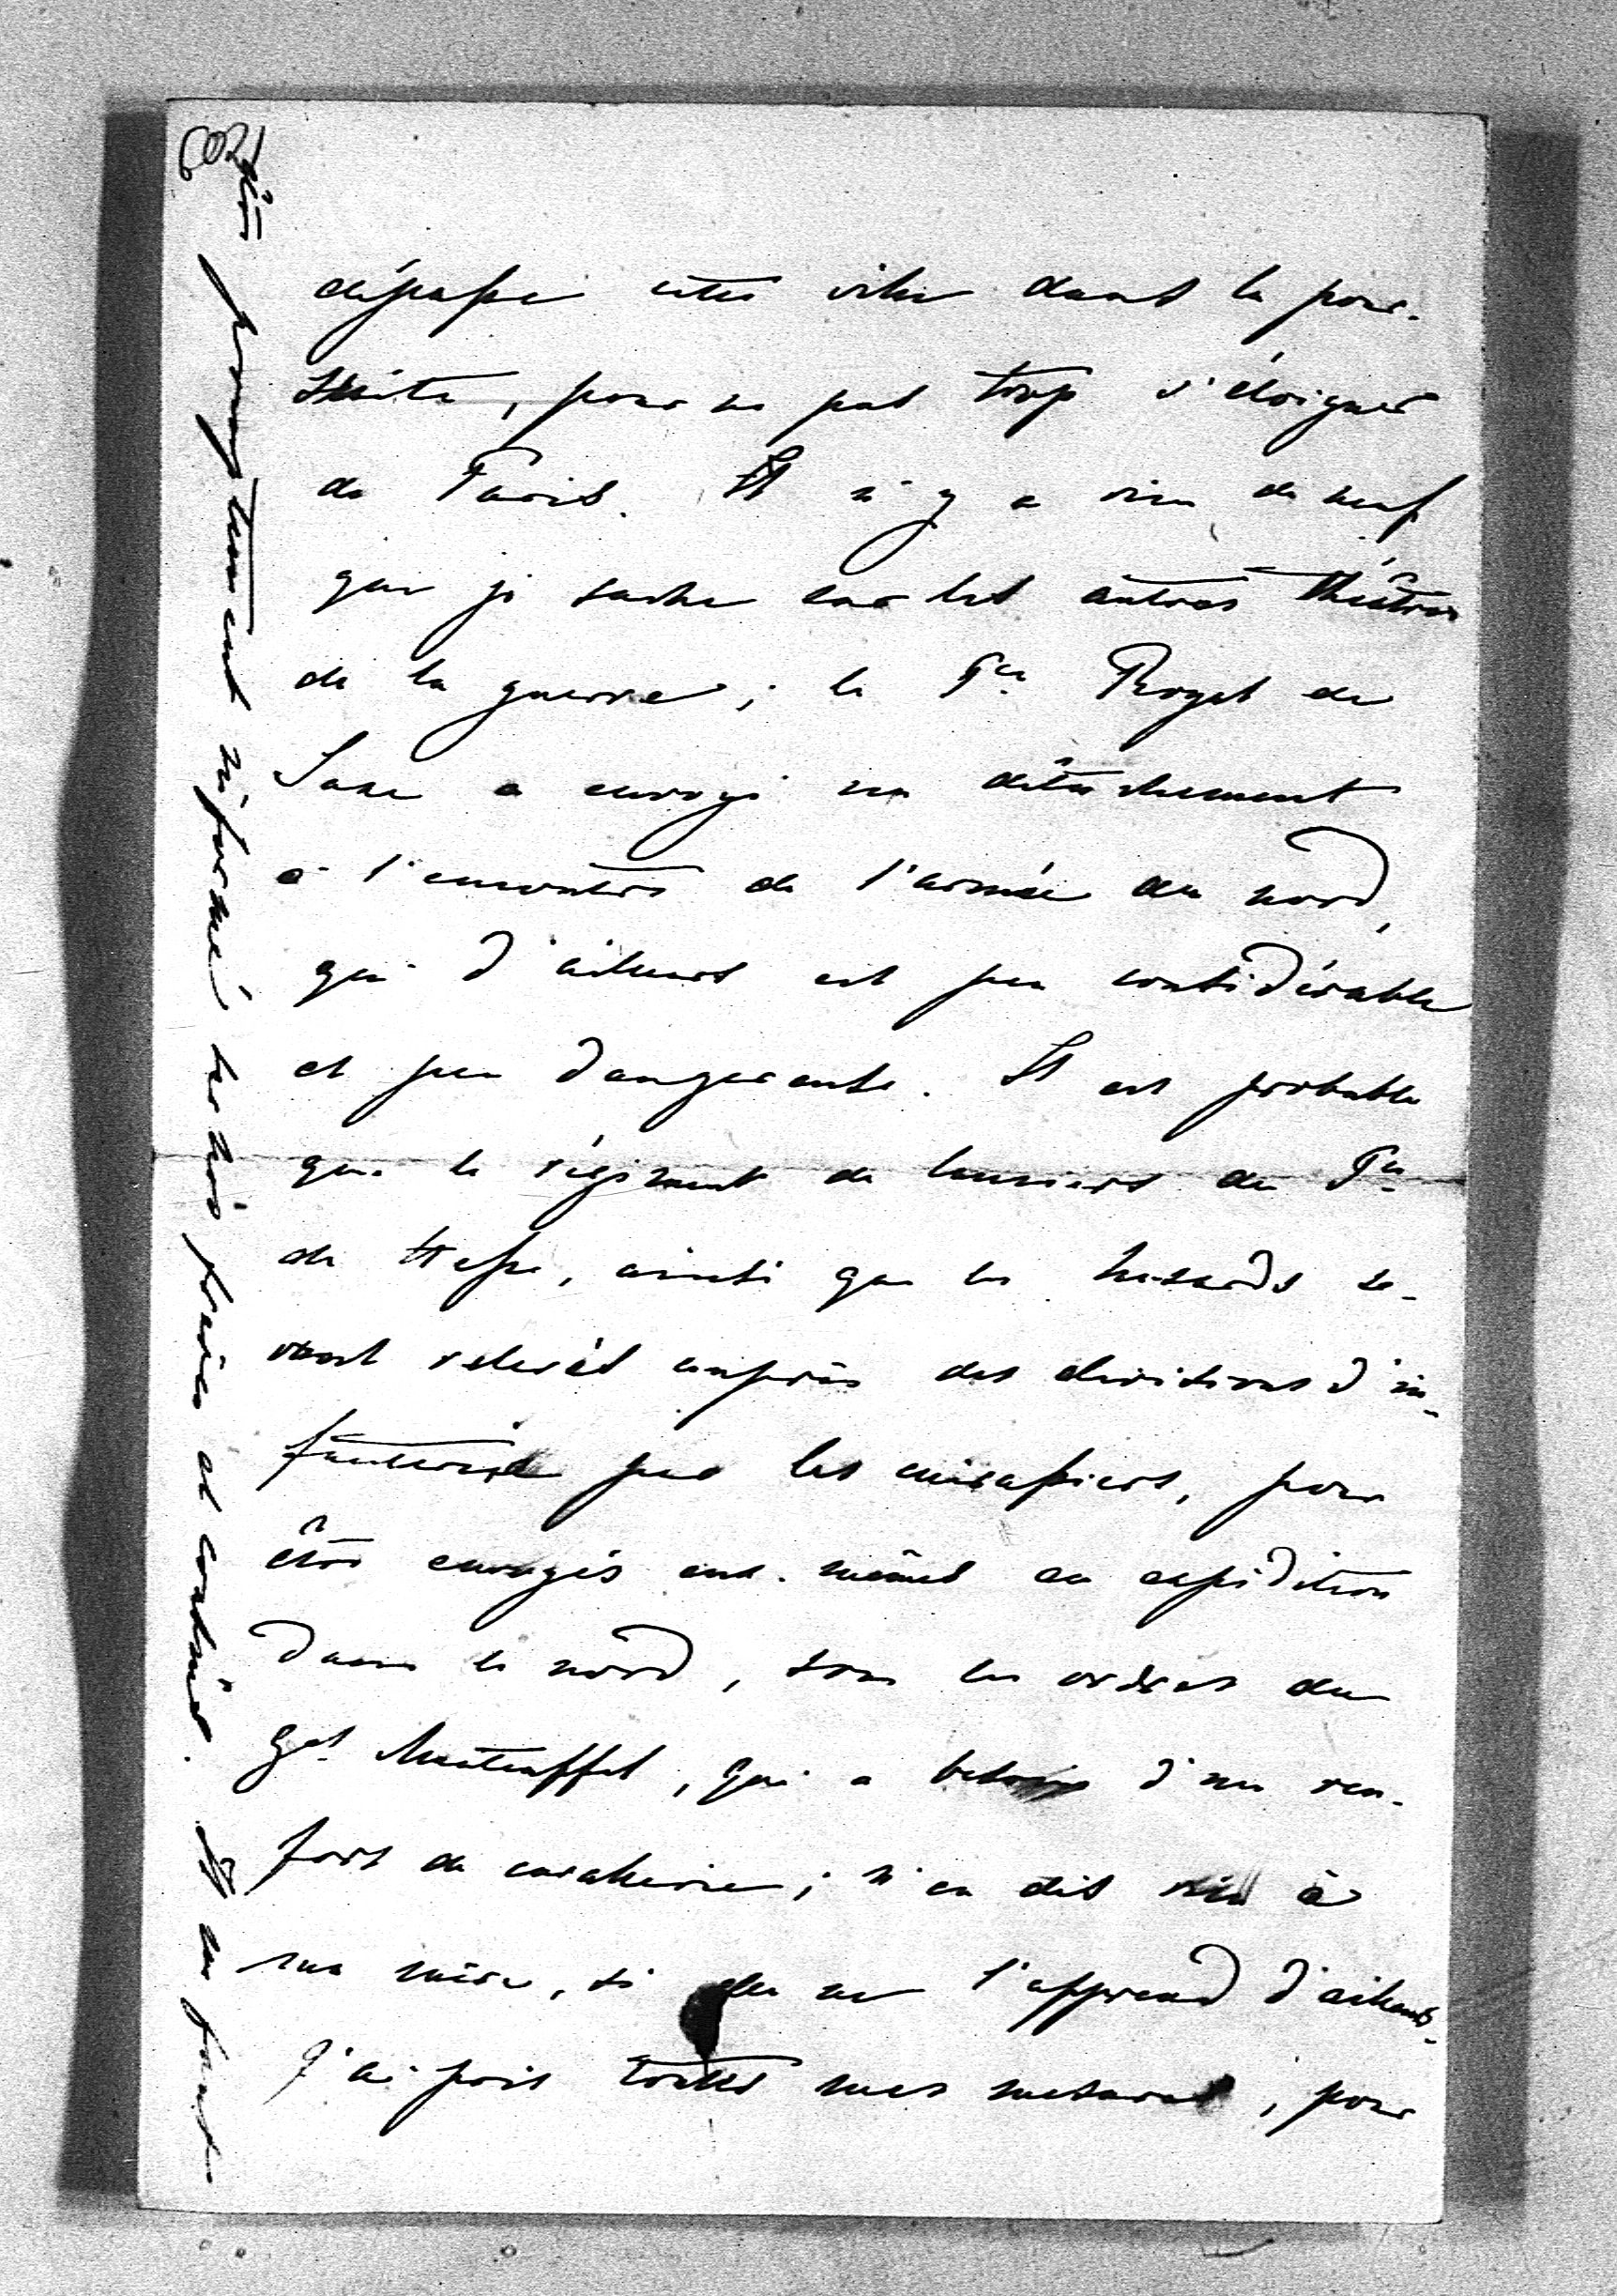 dépasse cette ville dans la pour-
suite, pour ne pas trop s'éloigner
de Paris. Il n'y a rien de neuf
que je sache sur les autres théâtres
de la guerre; le Pce Royal de
Saxe a envoyé un détachement
à l'encontre de l'armée du nord,
qui d'ailleurs est peu considérable
et peu dangereuse. Il est probable
que le régiment de lanciers du Pce
de Hesse, ainsi que les husards se-
ront relevés auprès des divisions d'in-
fanterie par les cuirassiers, pour
être envoyés eux-mêmes en expédition
dans le nord, sous les ordres du
gal Manteuffel, qui a besoin d'un ren-
fort de cavalerie; n'en dis rien à
ma mère, si elle ne l'apprend d'ailleurs.
J'ai pris toutes mes mesures, pour
être promptement informé